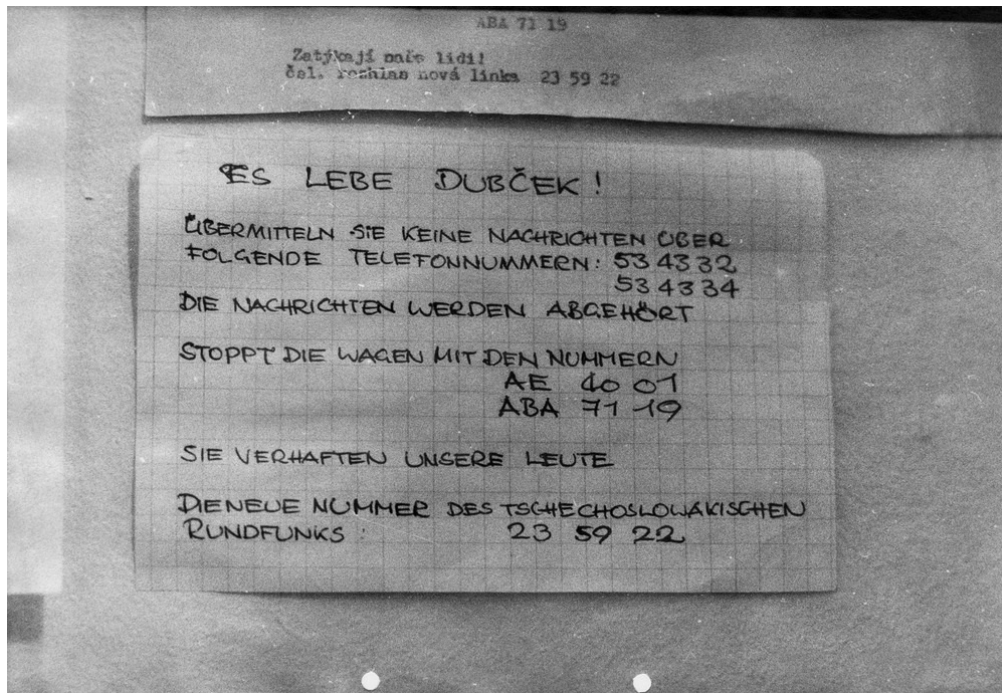 ABA 71 19
Zatýkají naše lidi!
čsl. rozhlas nová linka 23 59 22
ES LEBE DUBČEK!
ÜBERMITTELN SIE KEINE NACHRICHTEN ÜBER
FOLGENDE TELEFONNUMMERN: 53 43 32
53 43 34
DIE NACHRICHTEN WERDEN ABGEHÖRT
STOPPT DIE WAGEN MIT DEN NUMMERN
AE 40 01
ABA 71 19
SIE VERHAFTEN UNSERE LEUTE
DIE NEUE NUMMER DES TSCHECHOSLOWAKISCHEN
RUNDFUNKS: 23 59 22